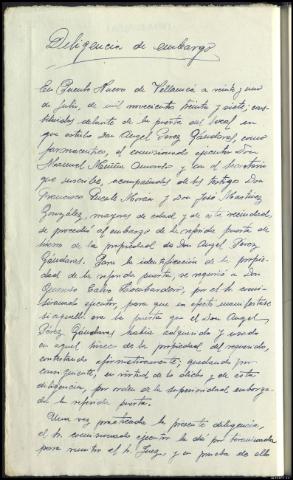 Diligencia de embargo
En Puente Nuevo de Villamea a veinte y uno
de Julio, de mil novecientos treinta y siete; cons-
tituidos delante de la puerta del local en
que estuvo Don Angel Perez Gándaras, como
farmaceutico, el comisionado ejecutor Don
Manuel y con el Secretario
que suscribe, acompañados de los testigos Don
Francisco Puente Morán y Don José Martinez
González, mayores de edad y de esta vecindad,
se procedió al embargo de la referida puerta de
hierro de la propiedad de Don Angel Perez
Gándaras. Para la identificación de la propie-
dad de la referida puerta, se requirió a Don
Calvo por el Sr. comi-
sionado ejecutor, para que en efecto manifestase
si aquella era la puerta que el Don Angel
Pérez Gándaras habia adquirido y usado
en aquel hueco de la propiedad del requerido,
contestando afirmativamente, quedando por
consiguiente, en virtud de lo dicho y de esta
diligencia, por orden de la superioridad embarga-
da la referida puerta.
Una vez practicada la presente diligencia,
el Sr. comisionado ejecutor la dió por terminada
para remitir al Sr. Juez, y en prueba de ello